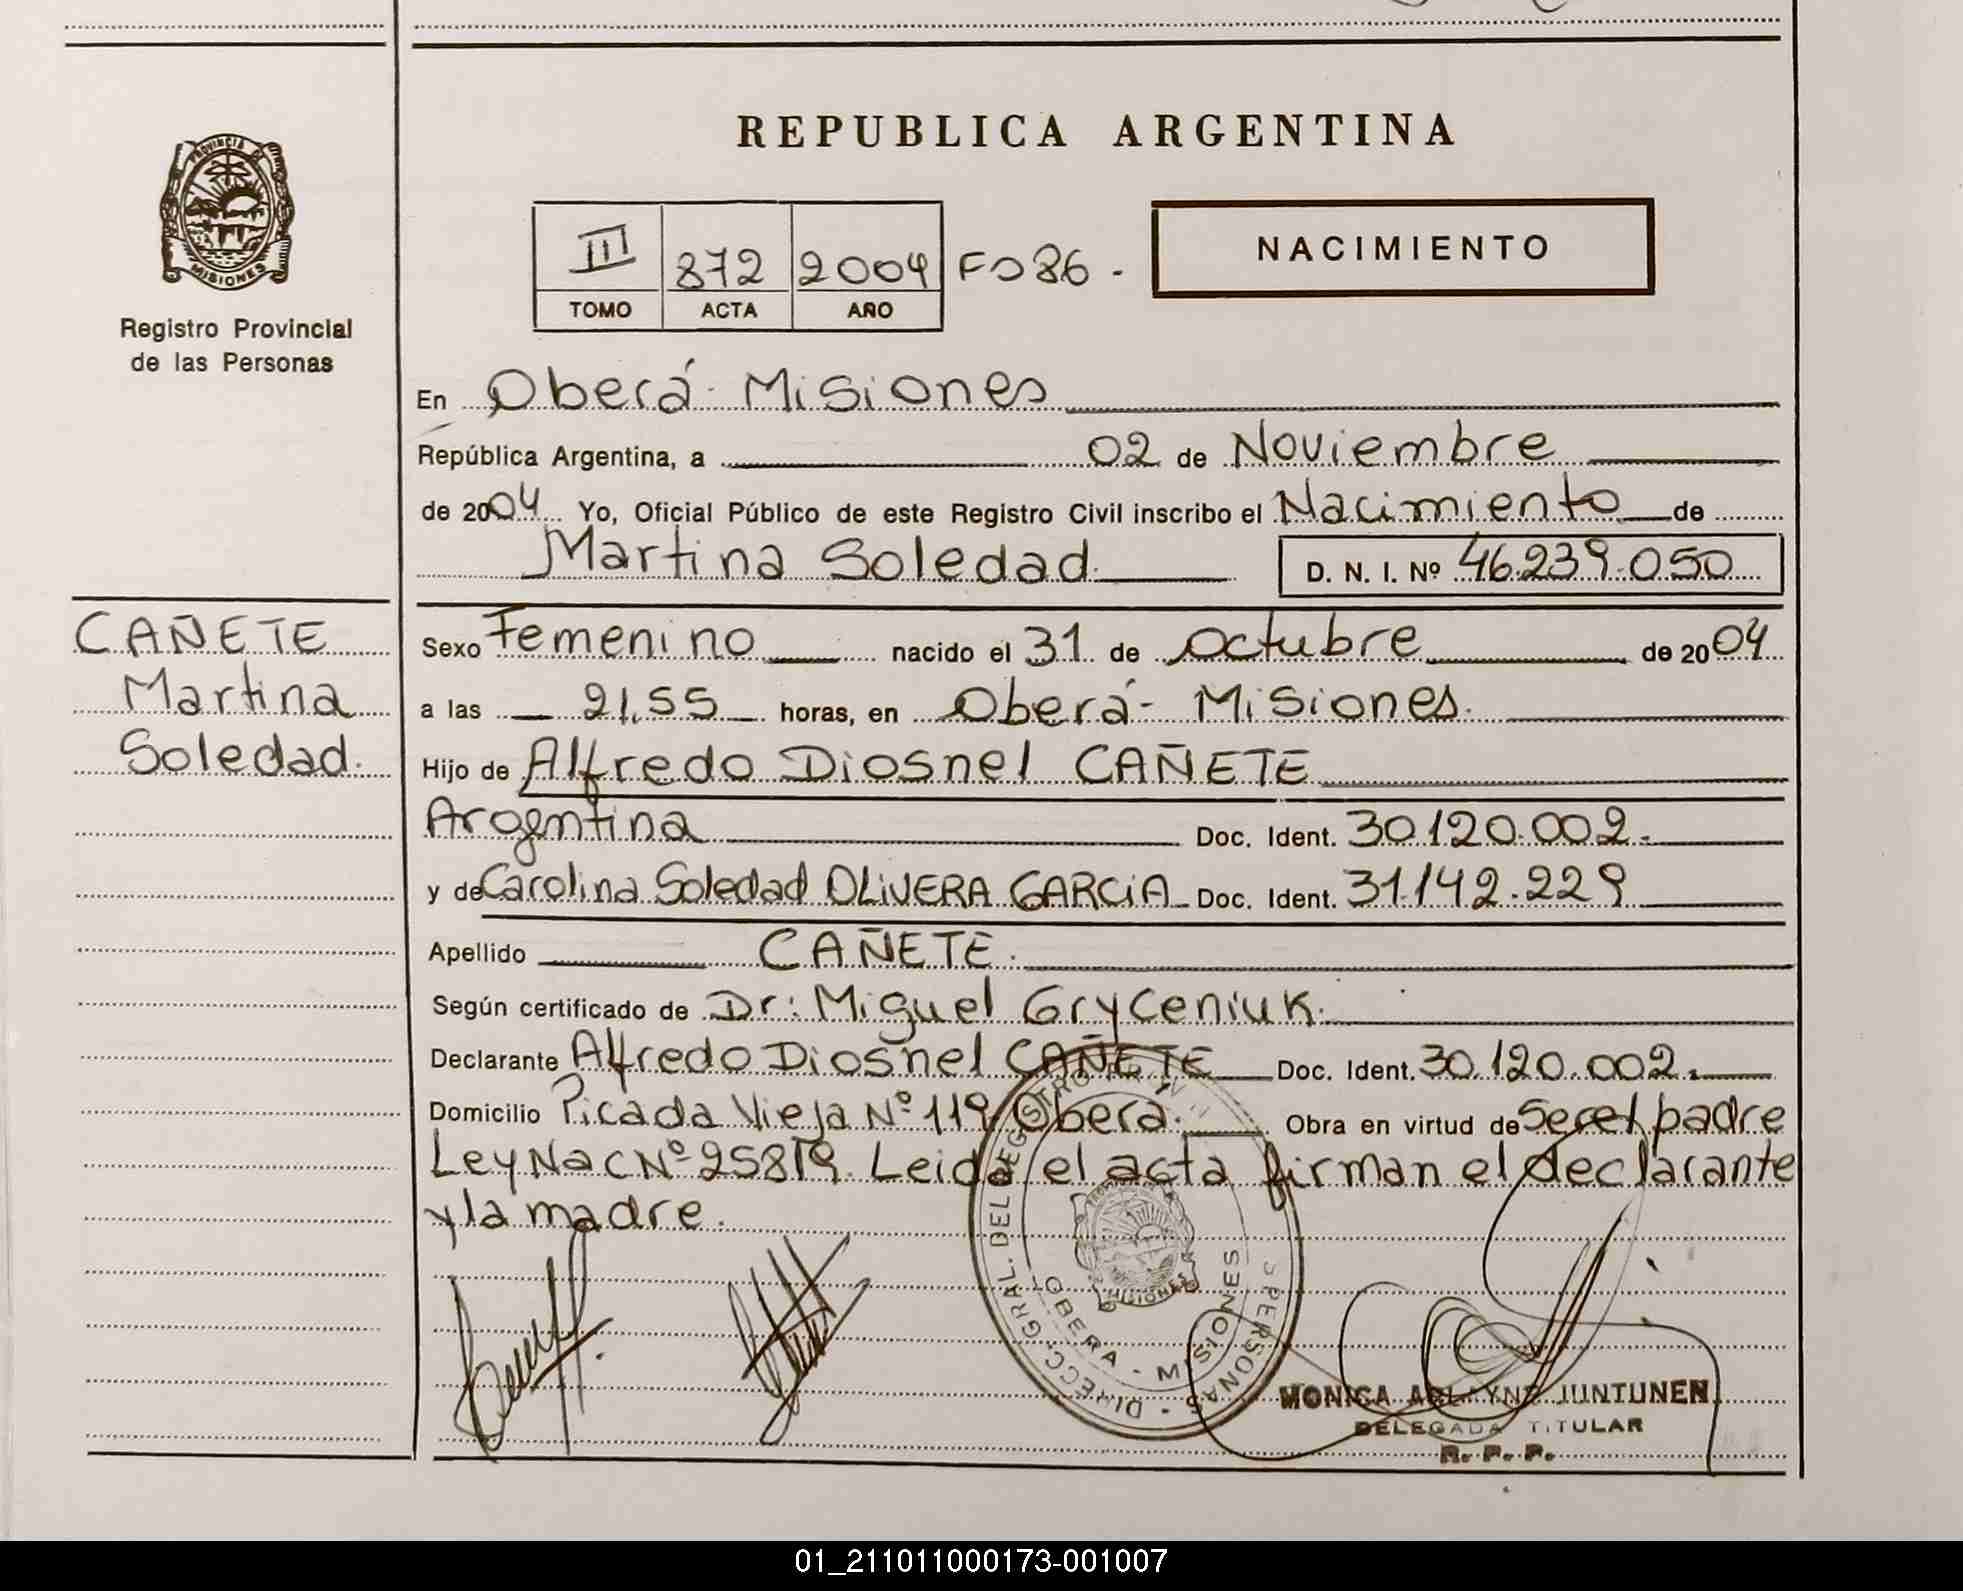 PROVINCIA DE
MISIONES
Registro Provincial
de las Personas
REPUBLICA ARGENTINA
III 872 2004 Fº 86.
TOMO ACTA AÑO
NACIMIENTO
En Oberá - Misiones
República Argentina, a 02 de Noviembre
de 2004 Yo, Oficial Público de este Registro Civil inscribo el Nacimiento de
Martina Soledad. D. N. I. Nº 46.239.050
CAÑETE
Martina
Soledad.
Sexo Femenino nacido el 31 de Octubre de 2004
a las 21,55 horas, en Oberá - Misiones.
Hijo de Alfredo Diosnel CAÑETE
Argentina Doc. Ident. 30.120.002.
y de Carolina Soledad OLIVERA GARCIA Doc. Ident. 31.142.229
Apellido CAÑETE.
Según certificado de Dr: Miguel Gryceniuk.
Declarante Alfredo Diosnel CAÑETE Doc. Ident. 30.120.002.
Domicilio Picada Vieja Nº 119 Oberá. Obra en virtud de Ser el padre
Ley Nac Nº 25819. Leida el acta firman el declarante
y la madre.
DIRECC. GRAL. DEL REGISTRO PERSONAS
OBERA - MISIONES
MISIONES
MONICA JUNTUNEN
DELEGADA TITULAR
R. P. P.
01_211011000173-001007